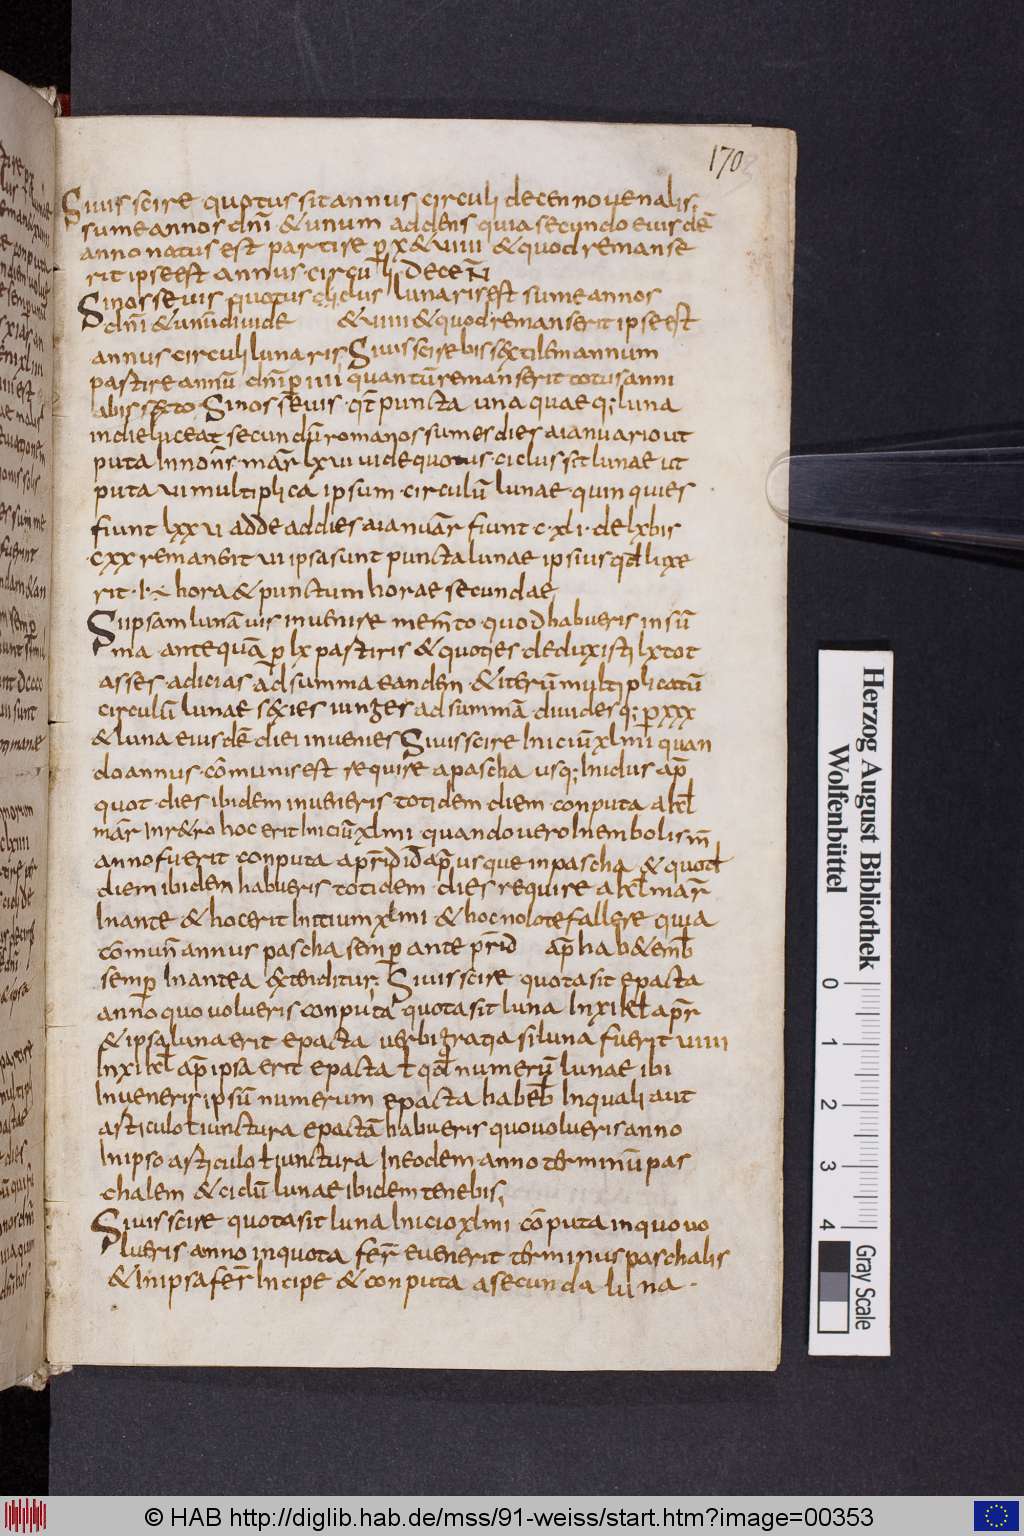 170
Siuis scire quotus sit annus circuli decennouenalis;
sume annos dnī & unum addens quia secundo eius dē
anno natus est partire ꝑ x & uiiii & quod remanse
rit ipse est annus circuli decen̄
Si nosse uis quotus ciclus lunaris est sume annos
dnī & unū diuide & uiiii & quod remanserit ipse est
annus circuli lunaris Siuis scire bissextilem annum
partire annū dnī ꝑ iiii quantū remanserit totus anni
a bissexto Si nosse uis qt̄ puncta una quaeq; luna
in die luceat secundū romanos sumes dies a ianuario ut
puta In non̄s mar̄ lxui uide quotus ciclus sit lunae ut
puta ui multiplica ipsum circulū lunae quinquies
fiunt lxxui adde ad dies a ianuar̄ fiunt c xli de lx bis
cxx remanent ui ipsa sunt puncta lunae ipsius qđ luxe
rit hora & punctum horae secundae
Si ipsam lunā uis inuenire mem̄to quod habueris in sū
ma antequā ꝑ lx partiris & quotiens deduxisti lx tot
asses adicias ad summa eandem & iterū multiplicatū
circulū lunae sexies iunges ad summā diuides q; ꝑ xxx
& luna eiusdē diei inuenies Siuis scire Iniciū xlmi quan
do annus cōmunis est require a pascha usq; In idus ap̄
quot dies ibidem inueneris totidem diem conputa a kl
mar̄ In retro hoc erit Iniciū xlmi quando uero Inembolism̄
anno fuerit conputa a prīd id ap̄ usque in pascha & quod
diem ibidem habueris totidem dies require a kl mar̄
In ante & hoc erit Initium xlmi & hoc nolo te fallere quia
cōmun̄ annus pascha semꝑ ante prīd ap̄ hab& emb̄
semꝑ In antea extenditur; Siuis scire quota sit epacta
anno quo uolueris conputa quota sit luna In xi kl apr̄
& ipsa luna erit epacta uerbi gratia si luna fuerit uiiii
In xi kl ap̄ ipsa erit epacta ł qđ numerū lunae ibi
Inueneris ipsū numerum epacta habeb̄ In quali aut
articulo ł iunctura epactā habueris quo uolueris anno
In ipso articulo ł iunctura In eodem anno terminū pas
chalem & ciclū lunae ibidem tenebis;
Siuis scire quota sit luna Inicio xlmi cōputa in quo uo
lueris anno in quota fer̄ euenerit terminus paschalis
& In ipsa fer̄ Incipe & conputa a secunda luna
Herzog August Bibliothek
Wolfenbüttel
0 1 2 3 4
Gray Scale
© HAB http://diglib.hab.de/mss/91-weiss/start.htm?image=00353